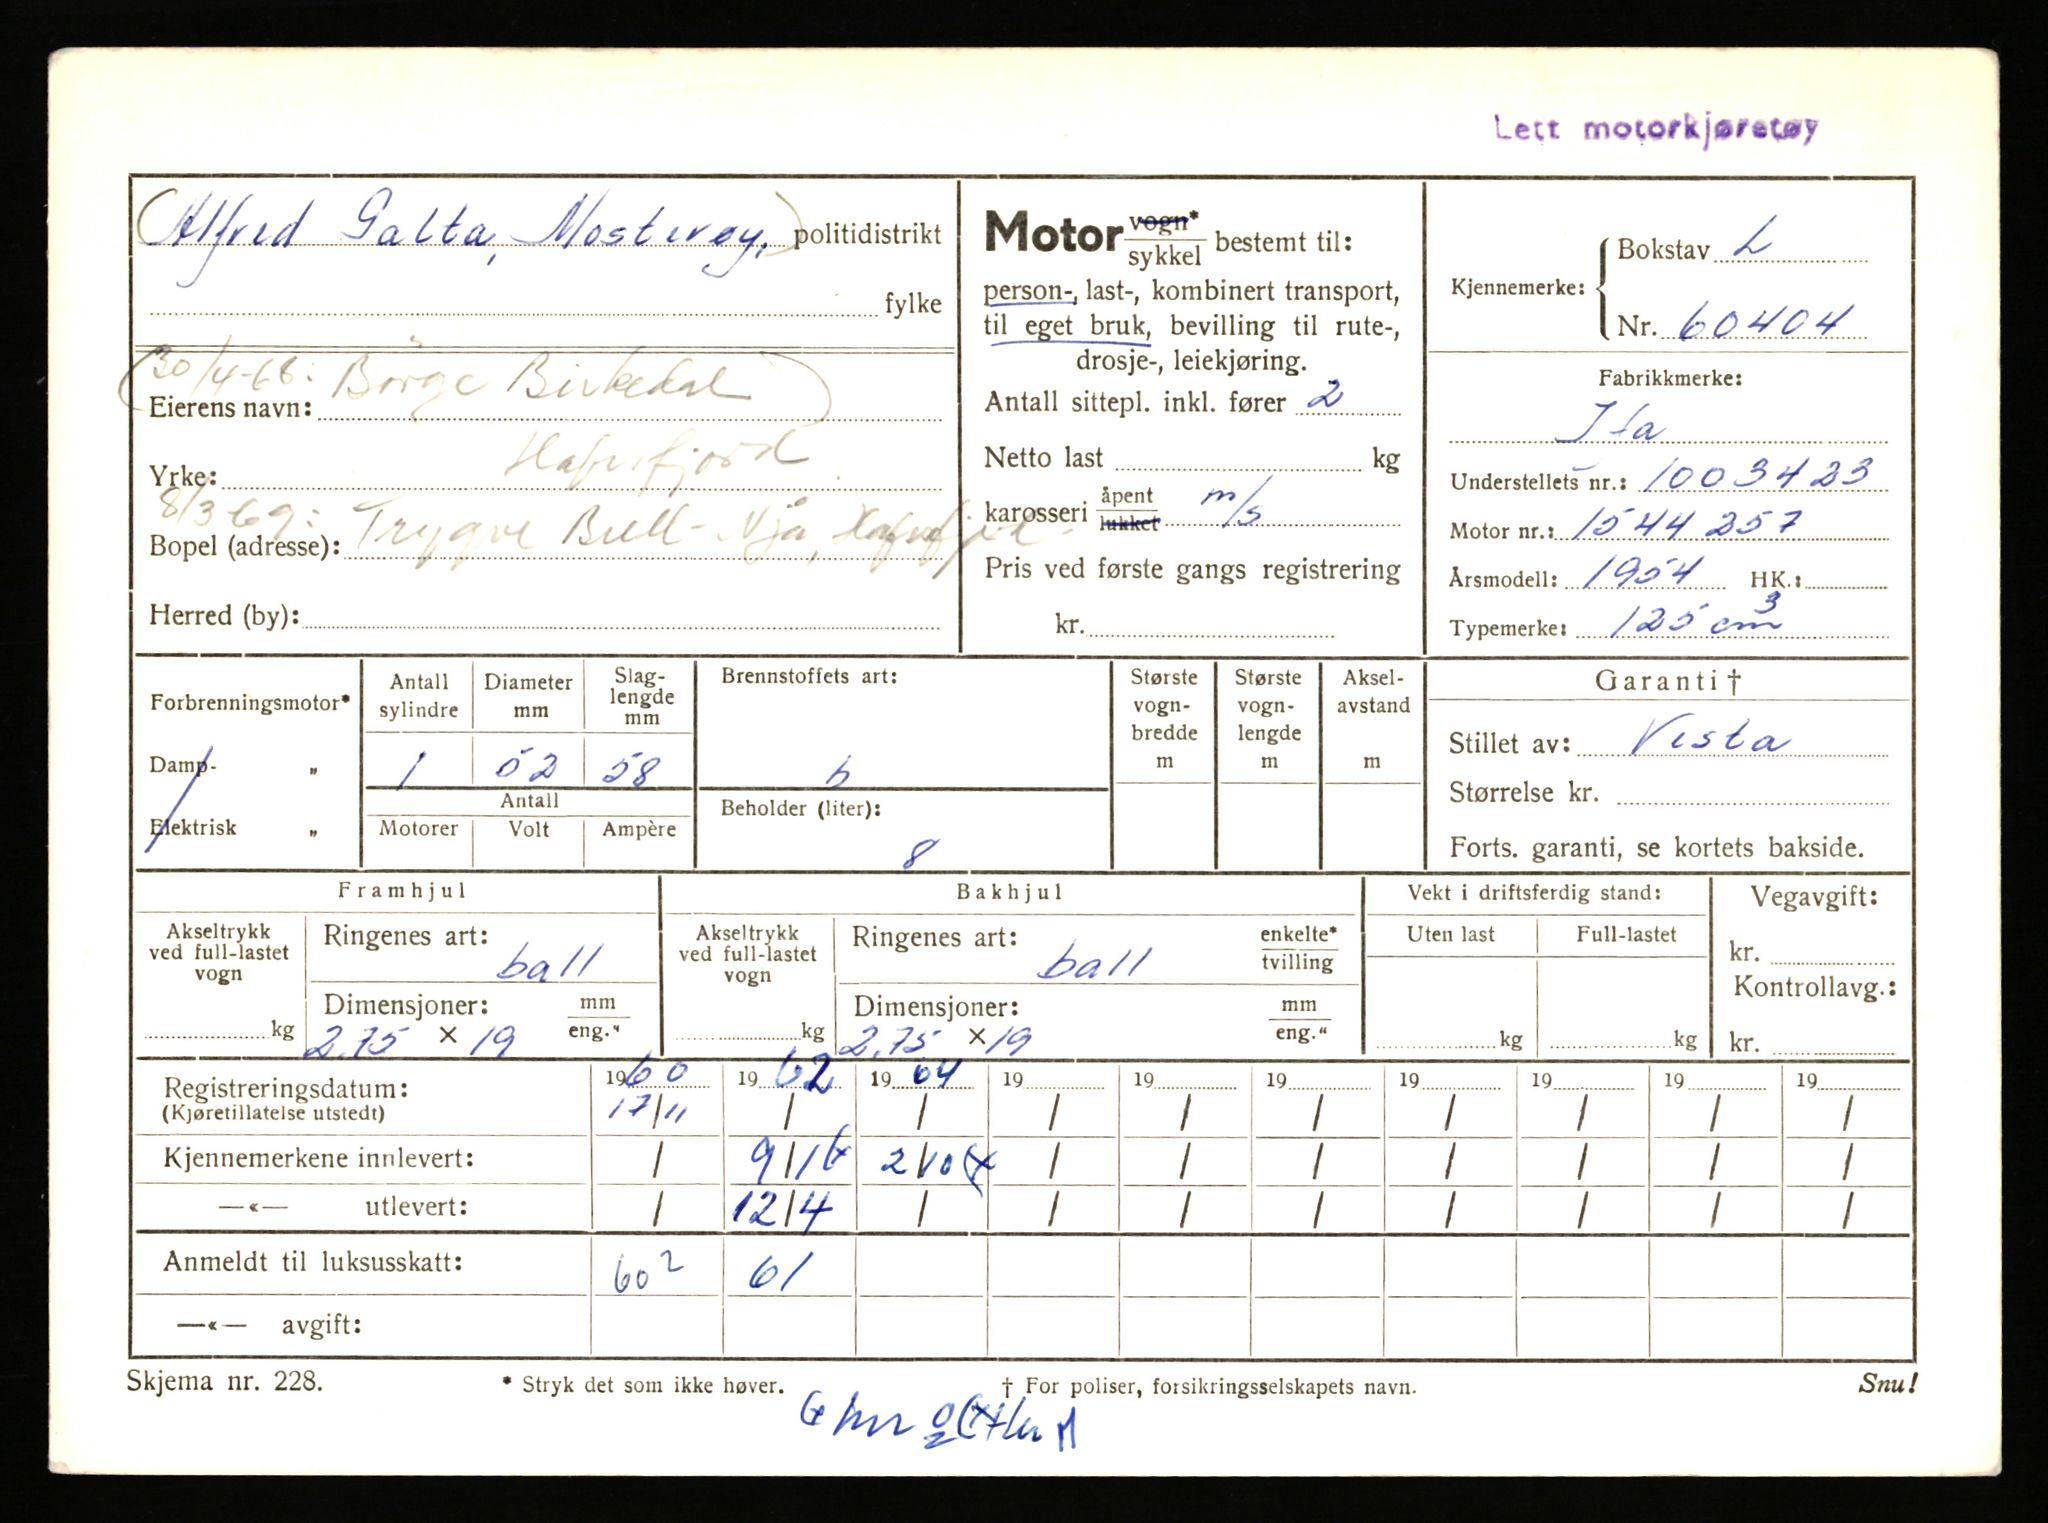 Lett motorkjøretøy
(Alfred Galta, Mosterøy.) politidistrikt
fylke
(30/4-68: Börge Birkedal)
Eierens navn:
Hafrsfjord
Yrke:
8/3-69: Trygve Bull-Njå, Hafrsfjord
Bopel (adresse):
Herred (by):
Motor vogn* / sykkel bestemt til:
person-, last-, kombinert transport,
til eget bruk, bevilling til rute-,
drosje-, leiekjøring.
Antall sittepl. inkl. fører 2
Netto last kg
karosseri åpent / lukket m/s
Pris ved første gangs registrering
kr.
Kjennemerke: Bokstav L
Nr. 60404
Fabrikkmerke:
Ifa
Understellets nr.: 1003423
Motor nr.: 1544257
Årsmodell: 1954 HK.:
Typemerke: 125 cm3
Forbrenningsmotor*
Damp- „
Elektrisk „
Antall sylindre Diameter mm Slag-lengde mm
1 52 58
Antall
Motorer Volt Ampère
Brennstoffets art:
b
Beholder (liter):
8
Største vogn-bredde m
Største vogn-lengde m
Aksel-avstand m
Garanti †
Stillet av: Vesta
Størrelse kr.
Forts. garanti, se kortets bakside.
Framhjul
Akseltrykk
ved full-lastet
vogn
kg
Ringenes art:
ball
Dimensjoner: mm / eng."
2.75 × 19
Bakhjul
Akseltrykk
ved full-lastet
vogn
kg
Ringenes art: enkelte* / tvilling
ball
Dimensjoner: mm / eng."
2.75 × 19
Vekt i driftsferdig stand:
Uten last Full-lastet
kg kg
Vegavgift:
kr.
Kontrollavg.:
kr.
Registreringsdatum: 1960 1962 1964 19 19 19 19 19 19 19
(Kjøretillatelse utstedt) 17/11 / / / / / / / / /
Kjennemerkene innlevert: / 9/1 2/10 / / / / / / /
—«— utlevert: / 12/4 / / / / / / / /
Anmeldt til luksusskatt: 60 2 61
—«— avgift:
Skjema nr. 228. * Stryk det som ikke høver. † For poliser, forsikringsselskapets navn. Snu!